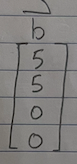 b
5
5
0
0